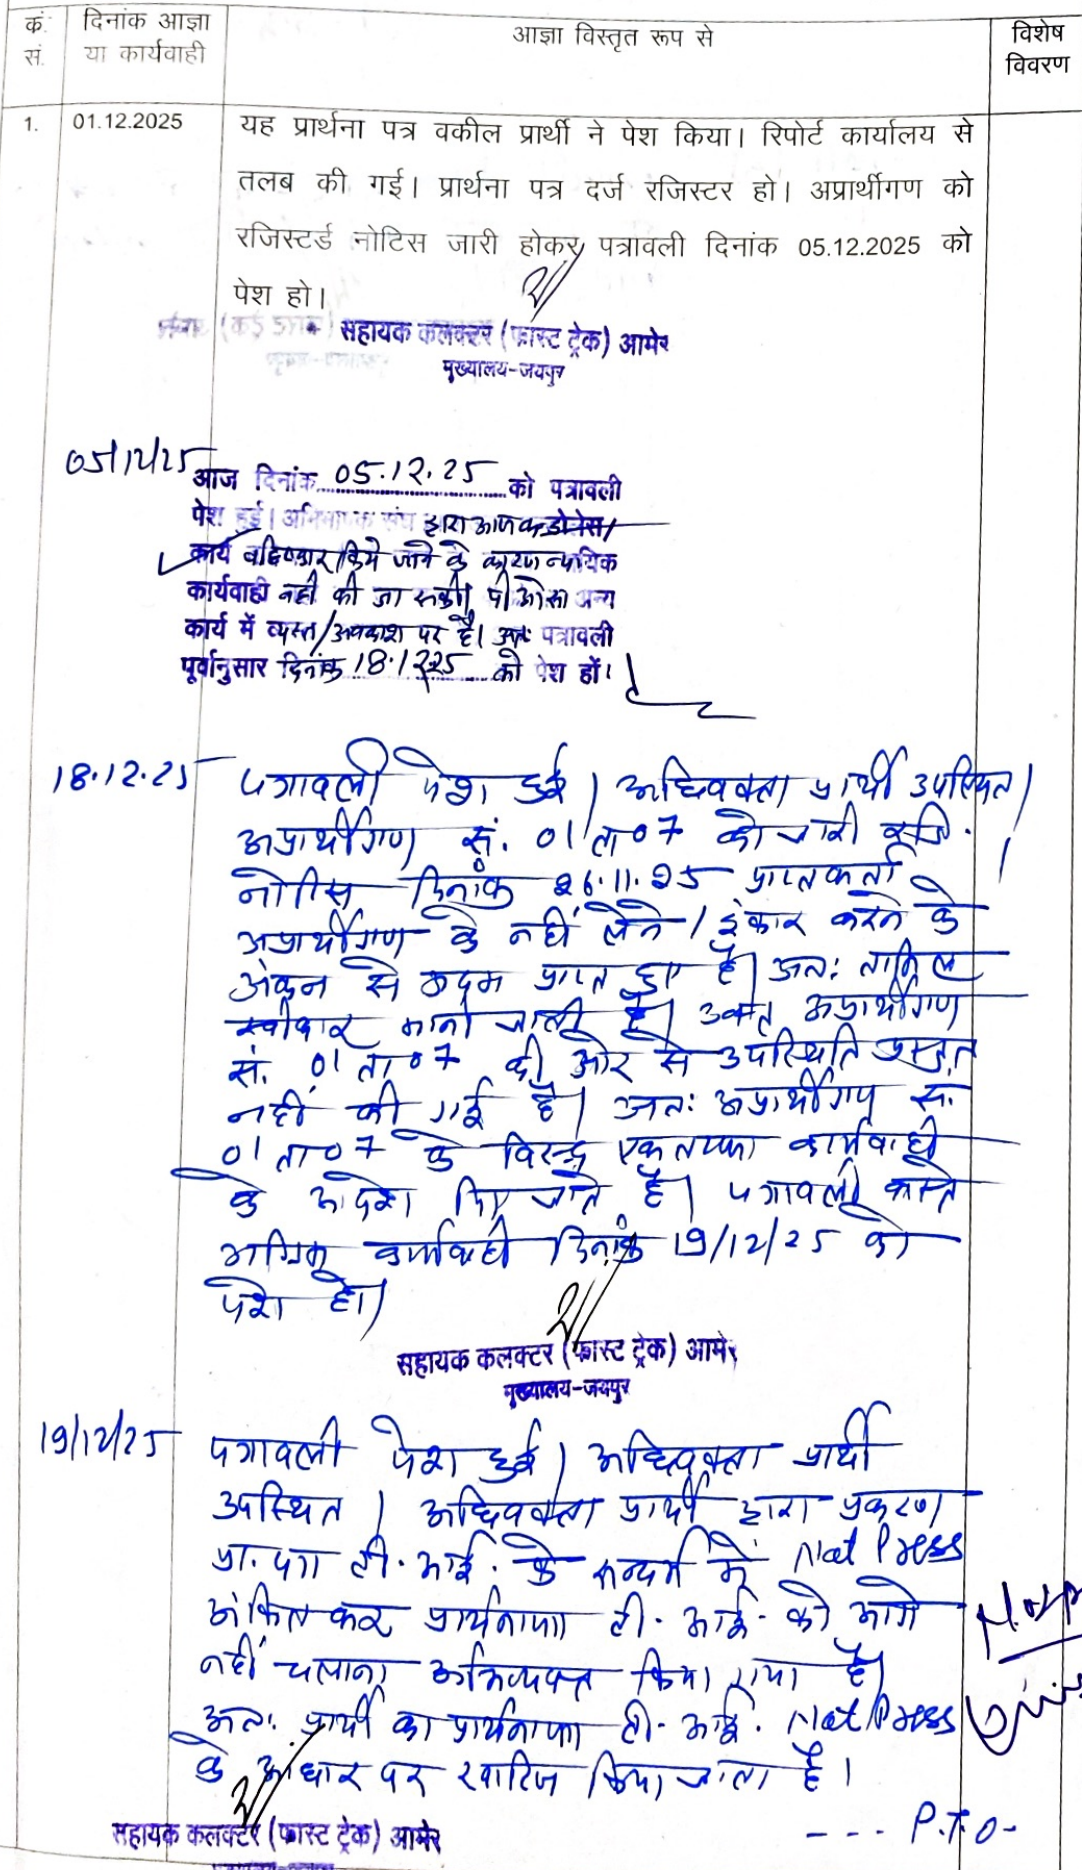 कं. सं. दिनांक आज्ञा या कार्यवाही आज्ञा विस्तृत रूप से विशेष विवरण
1. 01.12.2025 यह प्रार्थना पत्र वकील प्रार्थी ने पेश किया। रिपोर्ट कार्यालय से
तलब की गई। प्रार्थना पत्र दर्ज रजिस्टर हो। अप्रार्थीगण को
रजिस्टर्ड नोटिस जारी होकर पत्रावली दिनांक 05.12.2025 को
पेश हो।
सहायक कलक्टर (फास्ट ट्रेक) आमेर
मुख्यालय-जयपुर
05/12/25 आज दिनांक 05.12.25 को पत्रावली
पेश हुई। अभिभाषक संघ द्वारा आज
कार्य बहिष्कार किये जाने के कारण न्यायिक
कार्यवाही नहीं की जा सकी। पीओ सा अन्य
कार्य में व्यस्त/अवकाश पर है। अतः पत्रावली
पूर्वानुसार दिनांक 18.12.25 को पेश हों।
18.12.25 पत्रावली पेश हुई। अधिवक्ता प्रार्थी उपस्थित।
अप्रार्थीगण सं. 01 ता 07 को जारी रजि.
नोटिस दिनांक 26.11.25 प्राप्तकर्ता
अप्रार्थीगण के नहीं लेने / इंकार करने के
अंकन से अदम प्राप्त हुए है। अतः तामिल
स्वीकार मानी जाती है। उक्त अप्रार्थीगण
सं. 01 ता 07 की ओर से उपस्थिति प्रस्तुत
नहीं की गई है। अतः अप्रार्थीगण सं.
01 ता 07 के विरूद्ध एकतरफा कार्यवाही
के आदेश दिए जाते है। पत्रावली वास्ते
अग्रिम कार्यवाही दिनांक 19/12/25 को
पेश हो।
सहायक कलक्टर (फास्ट ट्रेक) आमेर
मुख्यालय-जयपुर
19/12/25 पत्रावली पेश हुई। अधिवक्ता प्रार्थी
उपस्थित। अधिवक्ता प्रार्थी द्वारा प्रकरण
प्रा. पत्र टी. आई. के सन्दर्भ में Not Press
अंकित कर प्रार्थनापत्र टी. आई. को आगे
नहीं चलाना अभिव्यक्त किया गया है।
अतः प्रार्थी का प्रार्थनापत्र टी. आई. Not Press
के आधार पर खारिज किया जाता है।
सहायक कलक्टर (फास्ट ट्रेक) आमेर
--- P.T.O-